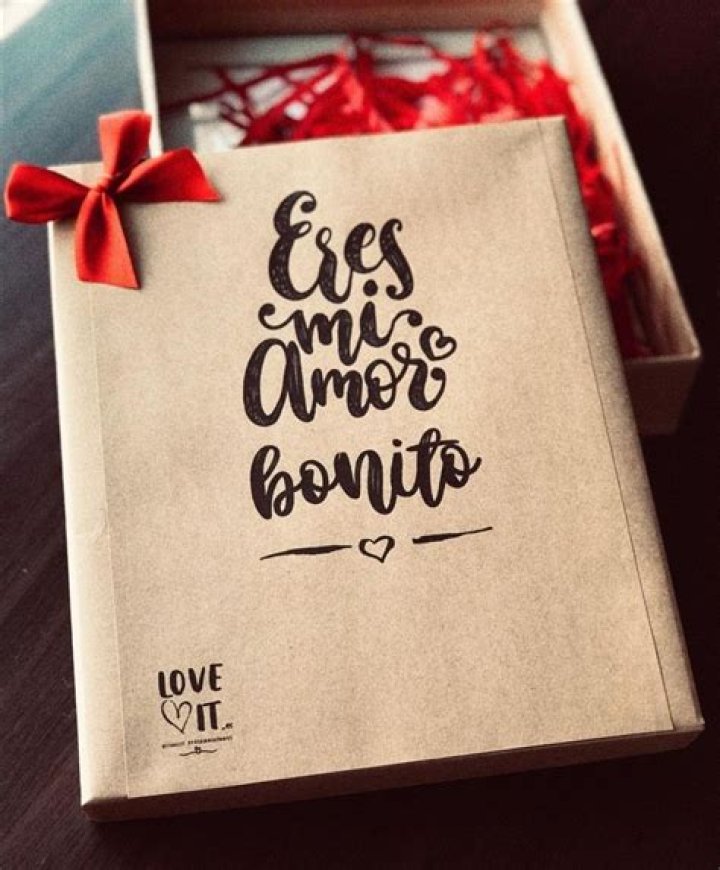 Eres
mi
Amor
bonito
LOVE
IT.es